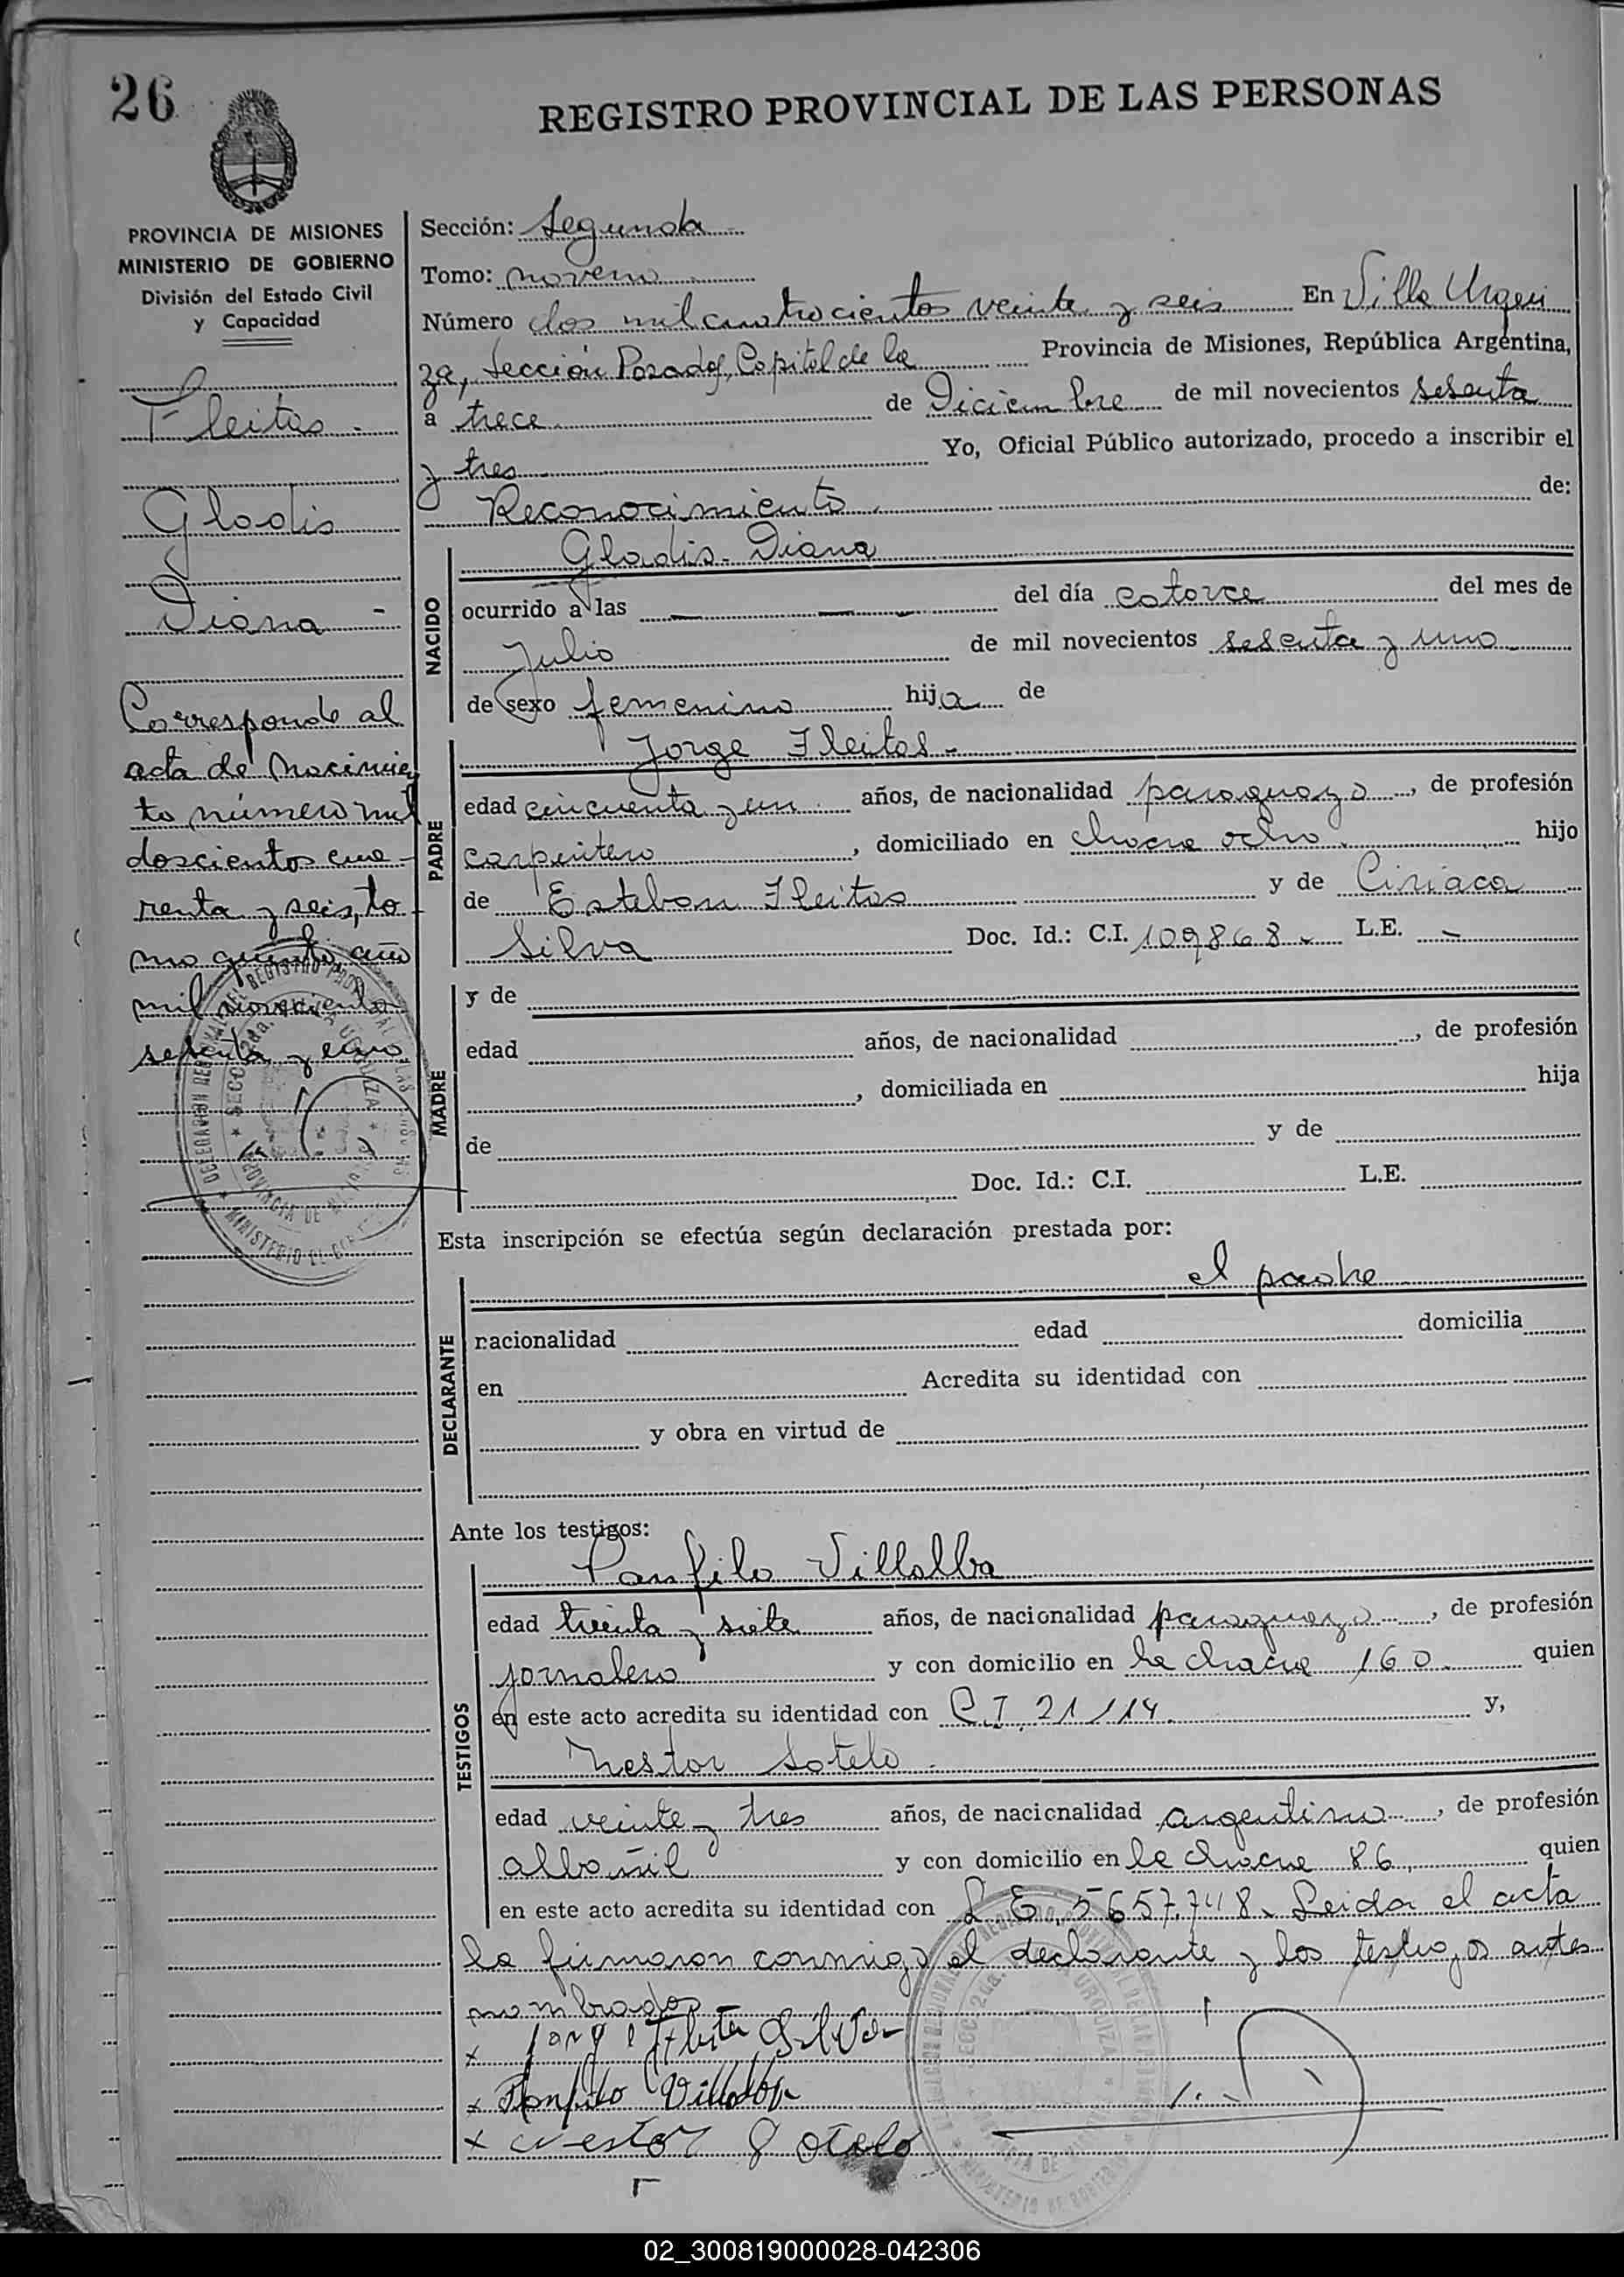 26
REGISTRO PROVINCIAL DE LAS PERSONAS
PROVINCIA DE MISIONES
MINISTERIO DE GOBIERNO
División del Estado Civil
y Capacidad
Fleitas -
Gladis
Diana -
Corresponde al
acta de nacimien
to número mil
doscientos cua-
renta y seis, to-
mo quinto, año
mil novecientos
sesenta y uno.
Sección: Segunda
Tomo: noveno
Número dos mil cuatrocientos veinte y seis En Villa Urqui
za, Sección Posadas, Capital de la Provincia de Misiones, República Argentina,
a trece de Diciembre de mil novecientos sesenta
y tres Yo, Oficial Público autorizado, procedo a inscribir el
Reconocimiento de:
NACIDO
Gladis Diana
ocurrido a las del día catorce del mes de
Julio de mil novecientos sesenta y uno
de sexo femenino hija de
PADRE
Jorge Fleitas -
edad cincuenta y un años, de nacionalidad paraguayo, de profesión
carpintero, domiciliado en chacra ocho hijo
de Esteban Fleitas y de Ciriaca
Silva Doc. Id.: C.I. 109868 L.E. -
MADRE
y de
edad años, de nacionalidad , de profesión
, domiciliada en hija
de y de
Doc. Id.: C.I. L.E.
Esta inscripción se efectúa según declaración prestada por:
el padre
DECLARANTE
nacionalidad edad domicilia
en Acredita su identidad con
y obra en virtud de
Ante los testigos:
TESTIGOS
Panfilo Villalba
edad treinta y siete años, de nacionalidad paraguayo, de profesión
jornalero y con domicilio en la chacra 160 quien
en este acto acredita su identidad con C.I. 21114 y,
Nestor Sotelo
edad veinte y tres años, de nacionalidad argentino, de profesión
albañil y con domicilio en la chacra 86, quien
en este acto acredita su identidad con L.E. 5657.748. Leida el acta
la firmaron conmigo el declarante y los testigos antes
nombrados
x Jorge Fleita Silva
x Panfilo Villalba
x Nestor Sotelo
02_300819000028-042306